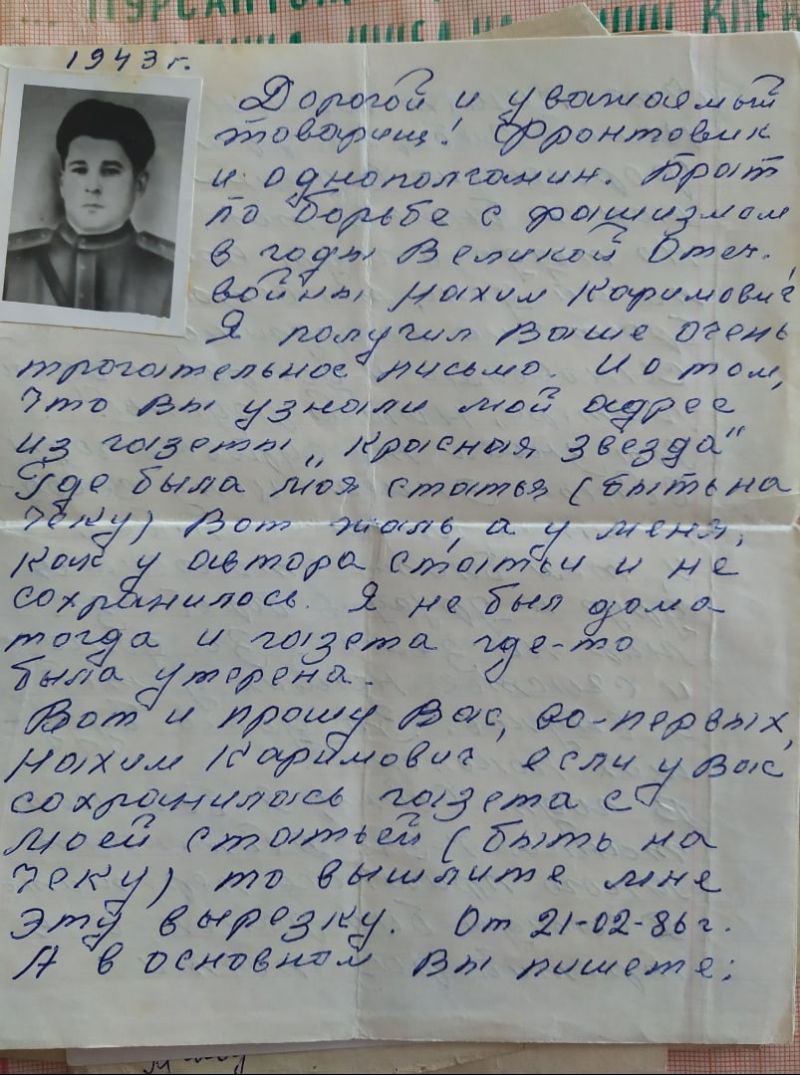 КУРСАНТОМ
1943 г.
Дорогой и уважаемый
товарищ! Фронтовик
и однополчанин. Брат
по борьбе с фашизмом
в годы Великой Отеч.
войны Нахим Каримович,
Я получил Ваше очень
трогательное письмо. И о том,
что Вы узнали мой адрес
из газеты „Красная звезда"
Где была моя статья (быть на
чеку) Вот жаль, а у меня,
как у автора статьи и не
сохранилось. Я не был дома
тогда и газета где-то
была утерена.
Вот и прошу Вас, во-первых,
Нахим Каримович если у Вас
сохранилась газета с
моей статьей (быть на
чеку) то вышлите мне
эту вырезку. От 21-02-86 г.
А в основном Вы пишете;